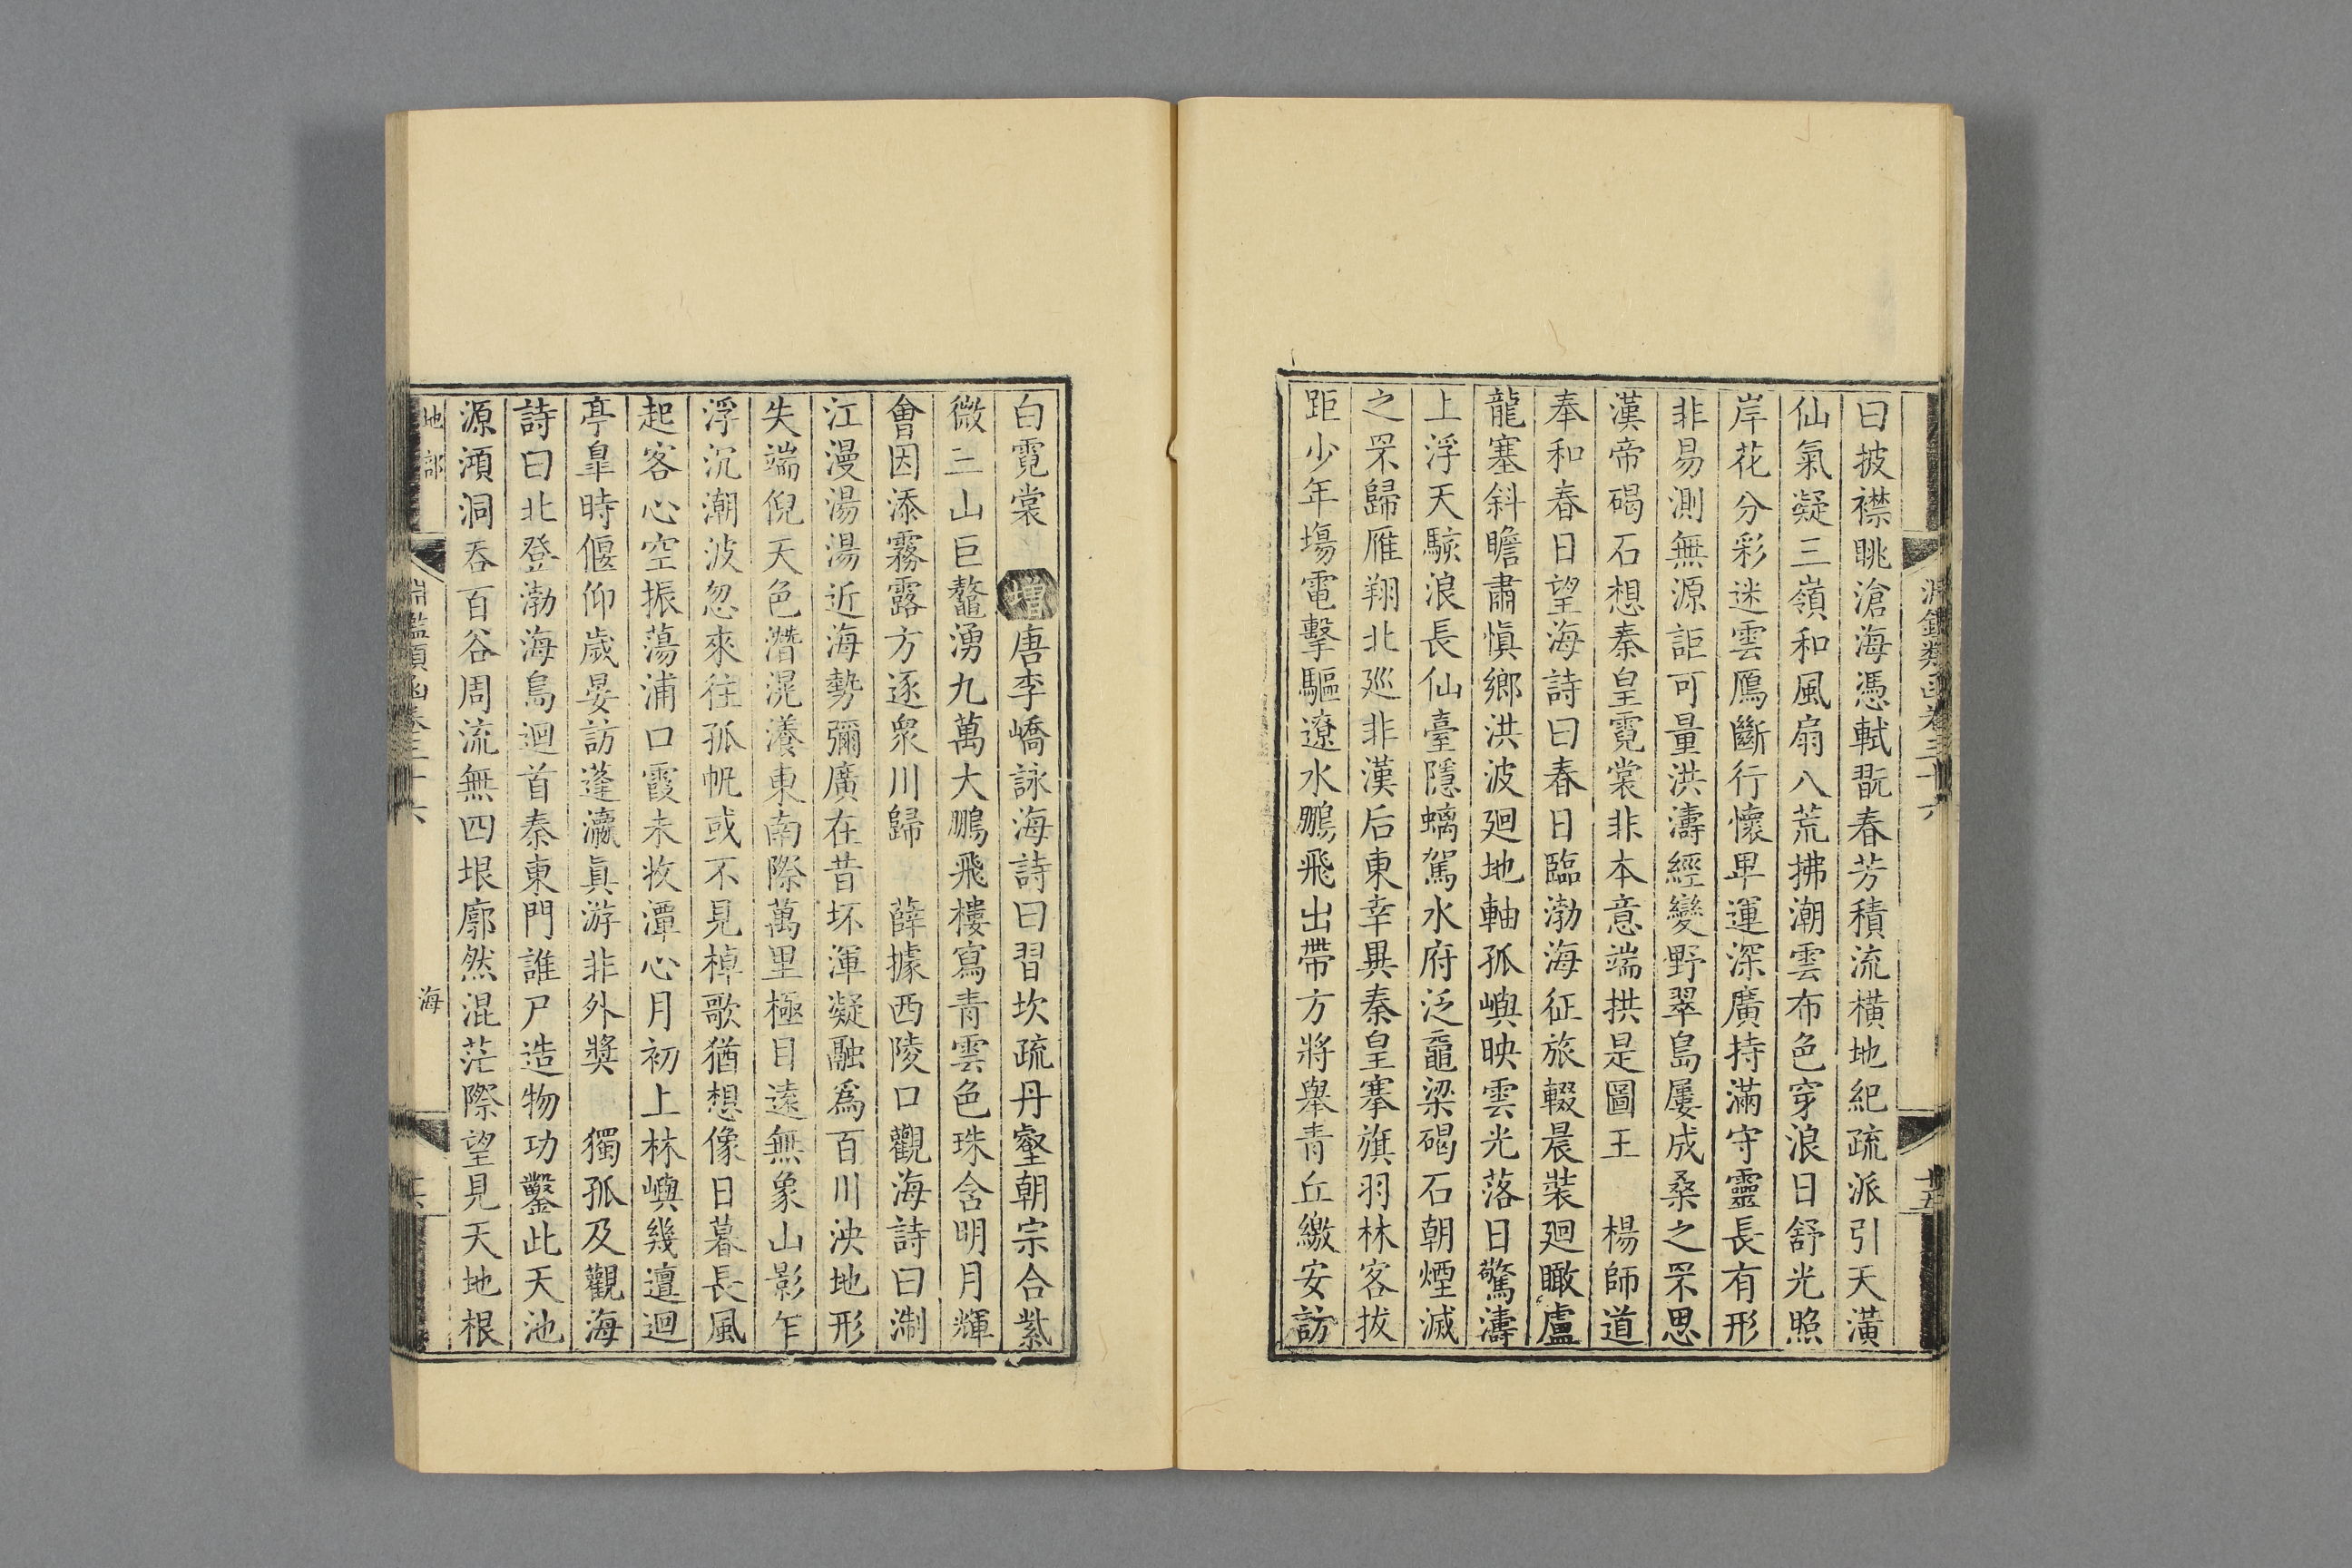 淵鑑類函卷三十六
十五
曰披襟眺滄海憑軾翫春芳積流橫地紀疏派引天潢
仙氣凝三嶺和風扇八荒拂潮雲布色穿浪日舒光照
岸花分彩迷雲鴈斷行懷卑運深廣持滿守靈長有形
非易測無源詎可量洪濤經變野翠島屢成桑之罘思
漢帝碣石想秦皇霓裳非本意端拱是圖王　楊師道
奉和春日望海詩曰春日臨渤海征旅輟晨裝廻瞰盧
龍塞斜瞻肅愼鄉洪波廻地軸孤嶼映雲光落日驚濤
上浮天駭浪長仙臺隱螭駕水府泛黿梁碣石朝煙滅
之罘歸雁翔北巡非漢后東幸異秦皇搴旗羽林客拔
距少年塲電擊驅遼水鵬飛出帶方將舉青丘繳安訪
白霓裳　增唐李嶠詠海詩曰習坎疏丹壑朝宗合紫
微三山巨鼇湧九萬大鵬飛樓寫青雲色珠含明月輝
會因添霧露方逐衆川歸　薛據西陵口觀海詩曰淛
江漫湯湯近海勢彌廣在昔坏渾凝融爲百川泱地形
失端倪天色潛滉瀁東南際萬里極目遠無象山影乍
浮沉潮波忽來往孤帆或不見棹歌猶想像日暮長風
起客心空振蕩浦口霞未收潭心月初上林嶼幾邅迴
亭皐時偃仰歲晏訪蓬瀛眞游非外獎　獨孤及觀海
詩曰北登渤海島迴首秦東門誰尸造物功鑿此天池
源澒洞吞百谷周流無四垠廓然混茫際望見天地根
地部
淵鑑類函卷三十六
海